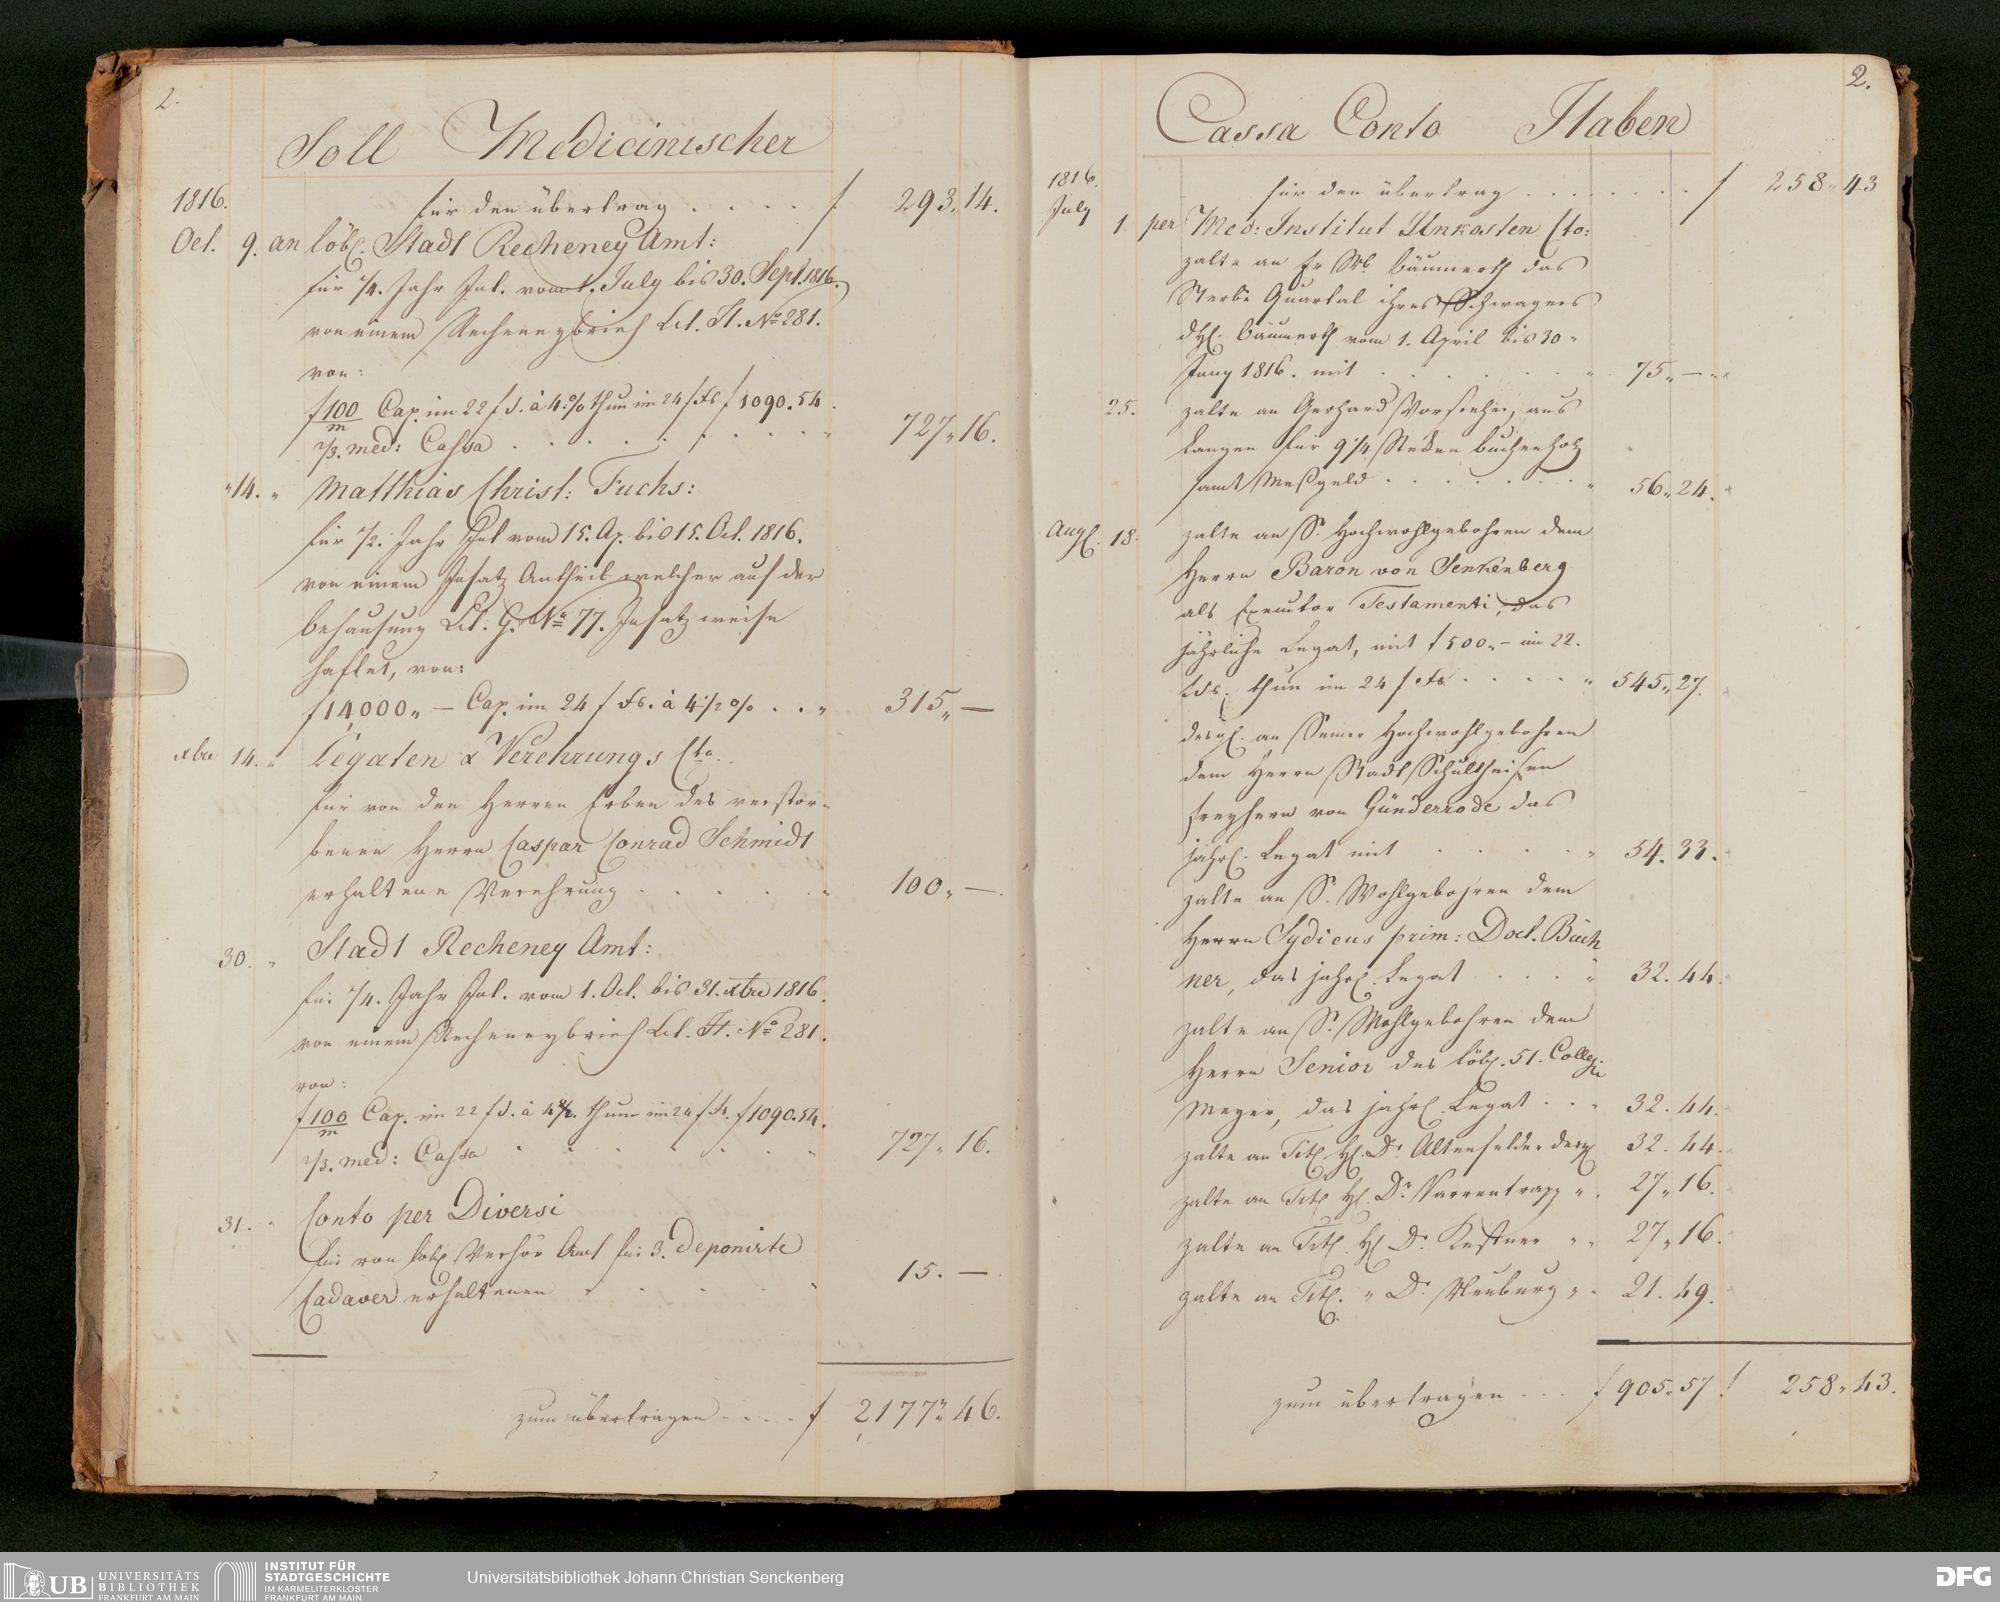 2.
Soll Medicinischer
1816. für den übertrag . . . . . f 293„14.
Oct. 9. an löbl. Stadt Recheney Amt:
für 1/4. Jahr Int. vom 1. July bis 30. Sept. 1816.
von einem Recheneybrief Lit. H. No 281.
von:
f 100/m Cap. im 22 f s. à 4.% thun im 24 f fs f 1090.54.
2/3. med: Cassa . . . . . . . . „ 727„16.
„14. „ Matthias Christ: Fuchs:
für 1/2. Jahr Int vom 15. Ap. bis 15. Oct. 1816.
von einem Insatz Antheil welcher auf der
behausung Lit. G. No 77. Insatz weise
haftet, von:
f 14,000„ — Cap. im 24 f fs. à 4 1/2 % . . „ 315„—
xbre 14. „ Legaten & Verehrungs Cto.
für von den Herren Erben des verstor-
benen Herrn Caspar Conrad Schmidt
erhaltene Verehrung . . . . . „ 100„—.
30. „ Stadt Recheney Amt:
für 1/4. Jahr Int. vom 1. Oct. bis 31. xbre 1816.
von einem Recheneybrief Lit. H. No 281.
von:
f 100/m Cap. im 22 f s. à 4%. thun im 24 f fs. f 1090.54.
2/3. med: Cassa „ 727„16.
31. „ Conto per Diversi
für von löbl Verhör Amt für 3. deponirte
Cadaver erhaltenen „ 15. —
zum übertragen . . . . f 2,177„46.
2.
Cassa Conto Haben
1816. für den übertrag . . . . . . . f 258„43
July 1. per Med: Institut Unkosten Cto:
zalte an Bäumerth das
Sterbe Quartal ihres Schwagers
Bäumerth vom 1. April bis 30„
Juny 1816. mit . . . . . . „ 75„—
25. zalte an Gerhard Vorsteher, aus
Langen für 9 1/4 Stecken buchenholz
samt Meßgeld . . . . . . . „ 56„24.
Augl. 18. zalte an S. Hochwohlgebohren dem
Herrn Baron von Senkenberg
als Executor Testamenti, das
jährliche Legat, mit f 500„— im 22.
thun im 24 f fs . . . . . „ 545„27.
desgl. an Seiner Hochwohlgebohren
dem Herrn Stadt Schultheisen
freyherrn von Günderrode das
jährl. Legat mit . . . . . „ 54.33.
zalte an S. Wohlgebohren dem
Herrn Sydicus prim: Doct. Büch
ner, das jährl. Legat . . . . „ 32.44.
zalte an S. Wohlgebohren dem
Herrn Senior des löbl. 51. Collegii
Meyer, das jährl. Legat . . „ 32.44.
zalte an Titl Hl. Dr Altenfelder desgl 32.44.
zalte an Titl Hl. Dr. Varrentrapp „ . 27„16.
zalte an Titl. Hl Dr. Kestner „ „ 27„16.
zalte an Titl. „ Dr. Neuburg „ . 21.49.
zum übertragen . . . f 905„57 f 258„43.
UB UNIVERSITÄTS
BIBLIOTHEK
FRANKFURT AM MAIN
INSTITUT FÜR
STADTGESCHICHTE
IM KARMELITERKLOSTER
FRANKFURT AM MAIN
Universitätsbibliothek Johann Christian Senckenberg
DFG